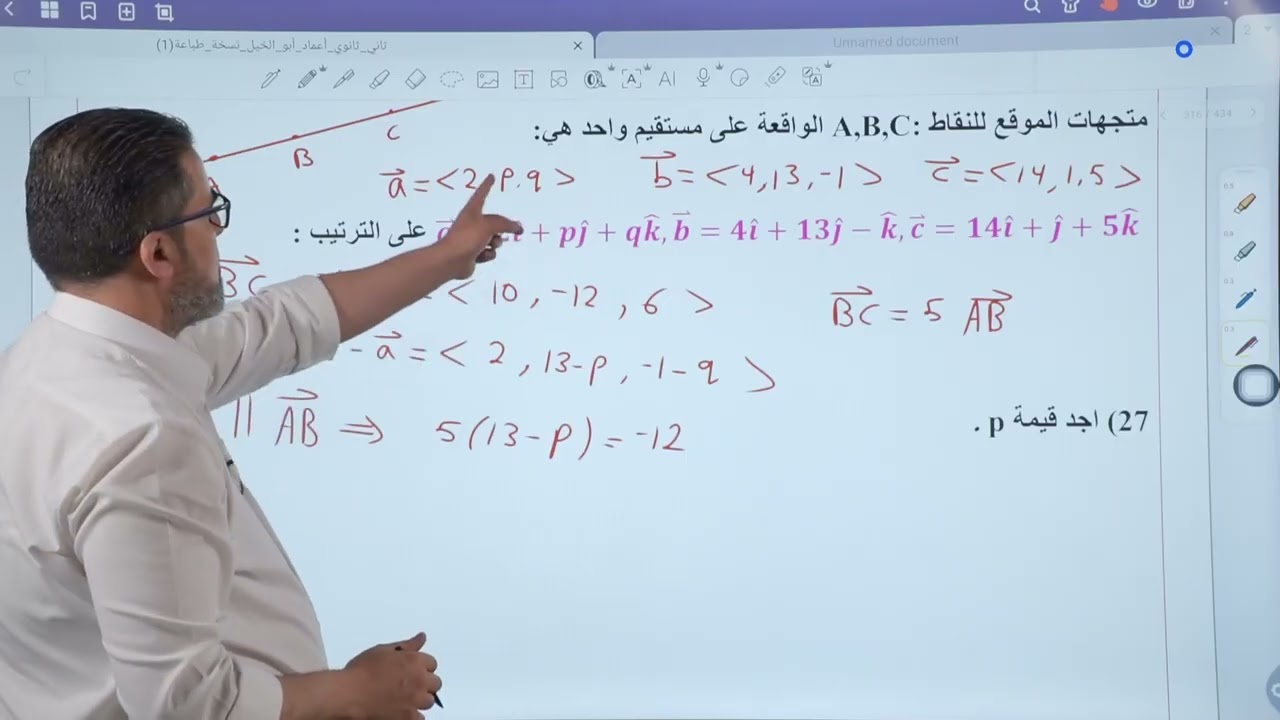 ثاني_ثانوي_أعماد_أبو_الخيل_نسخة_طباعة(1)
Unnamed document
2
316 / 434
متجهات الموقع للنقاط A,B,C: الواقعة على مستقيم واحد هي:
B C
a⃗ = <2, p, q> b⃗ = <4, 13, -1> c⃗ = <14, 1, 5>
+ pĵ + qk̂, b⃗ = 4î + 13ĵ − k̂, c⃗ = 14î + ĵ + 5k̂ على الترتيب :
BC < 10, -12, 6 >
BC = 5 AB
- a⃗ = < 2, 13-p, -1-q >
|| AB ⇒ 5(13-p) = -12
27) اجد قيمة p .